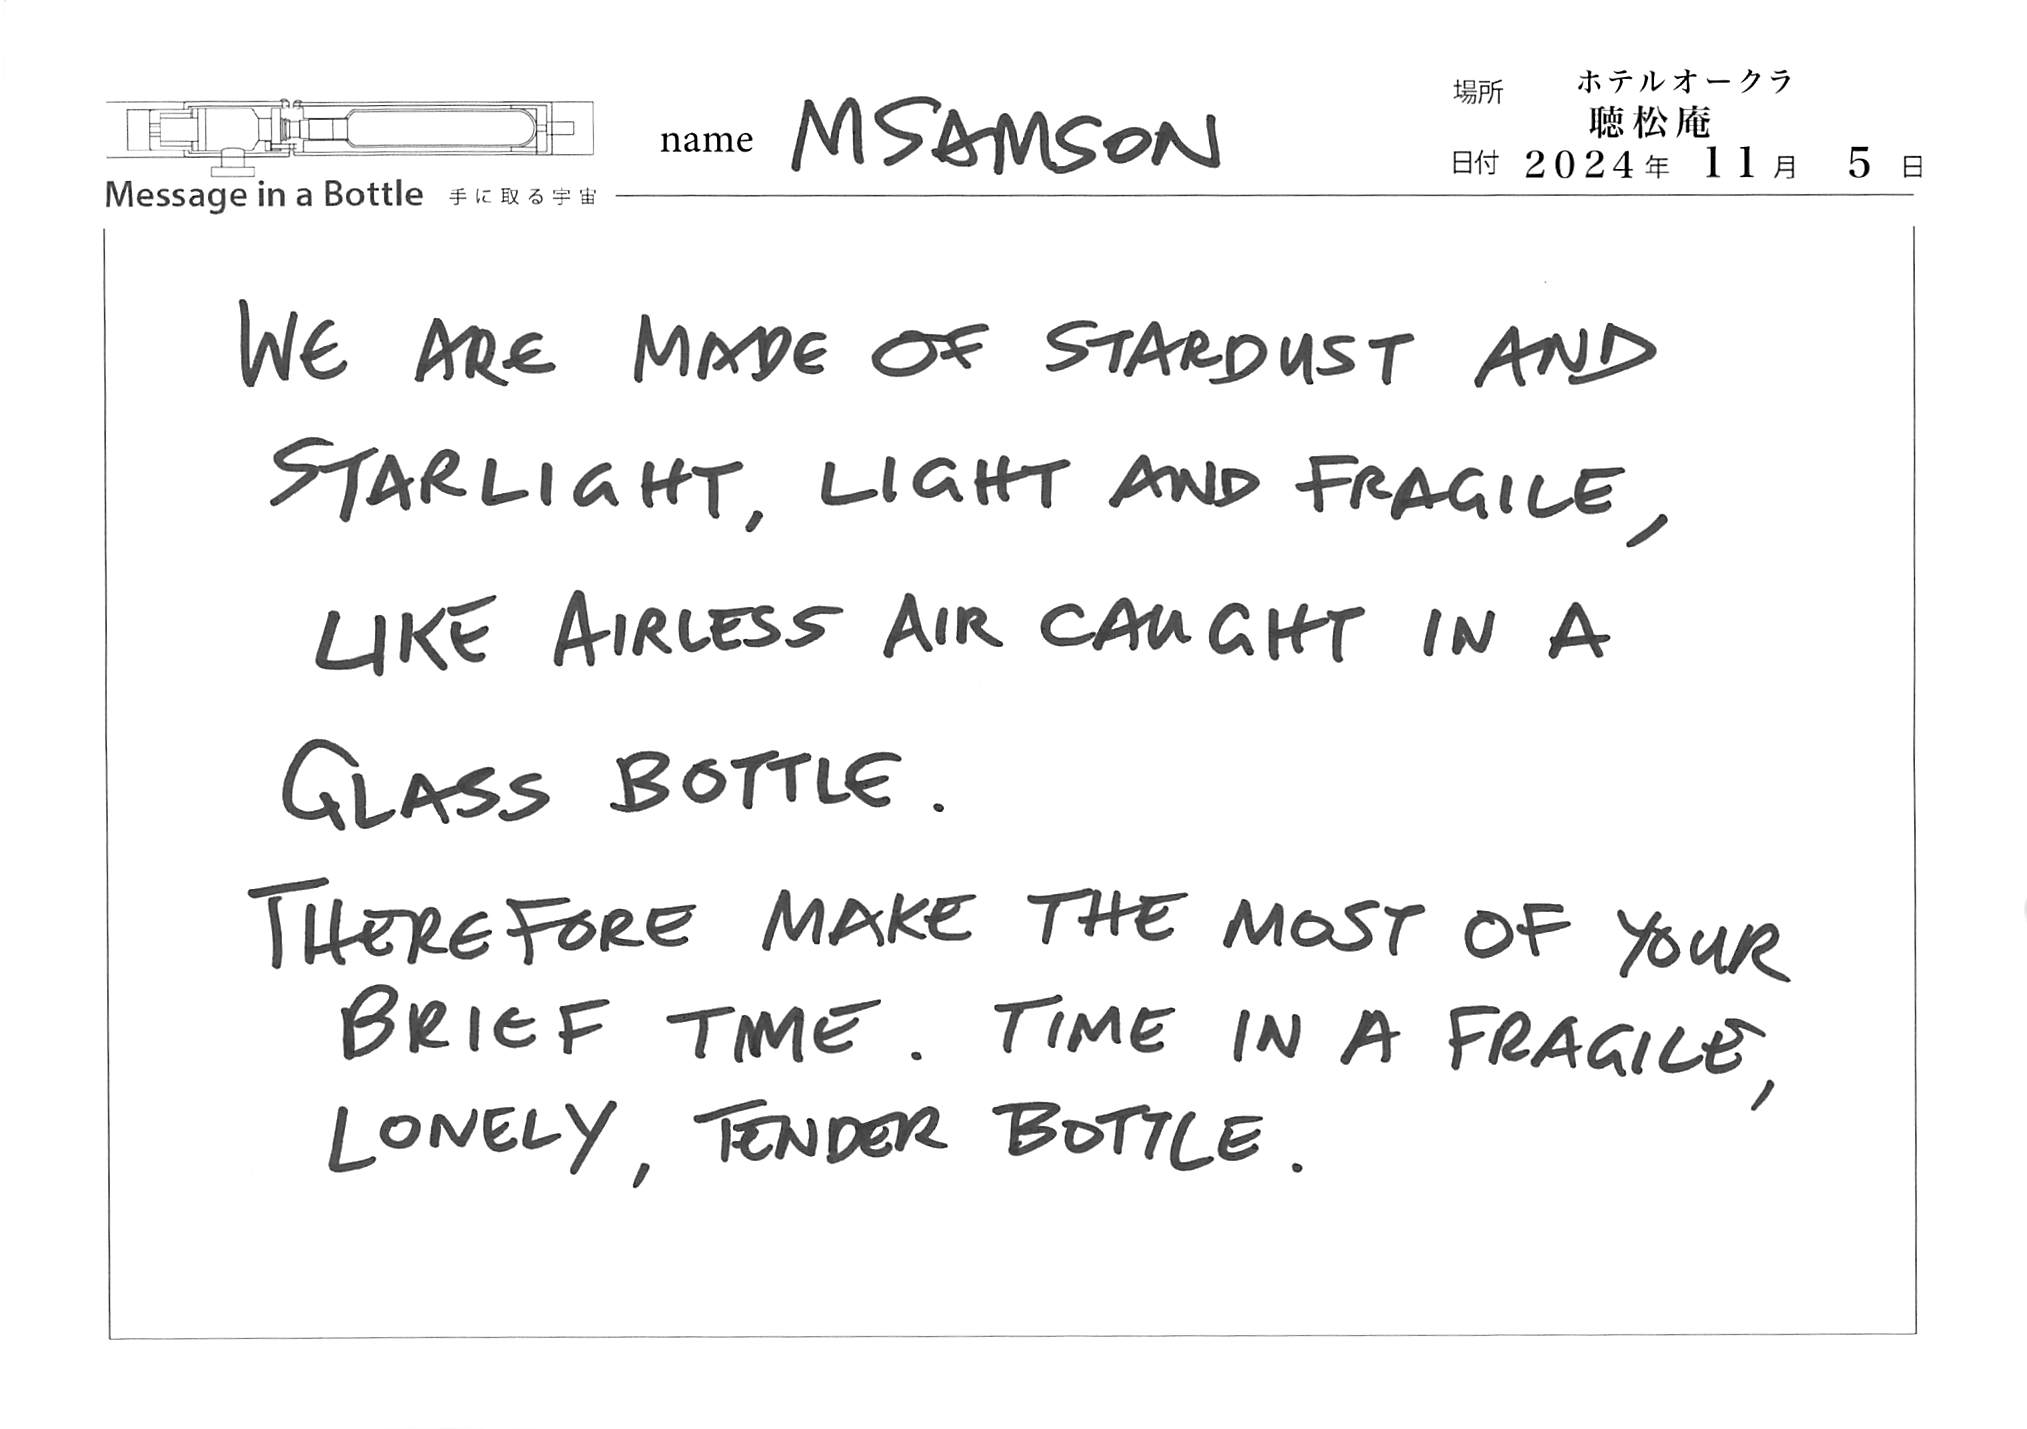 場所 ホテルオークラ
聴松庵
name MSAMSON
日付 2024年 11月 5日
Message in a Bottle 手に取る宇宙
WE ARE MADE OF STARDUST AND
STARLIGHT, LIGHT AND FRAGILE,
LIKE AIRLESS AIR CAUGHT IN A
GLASS BOTTLE.
THEREFORE MAKE THE MOST OF YOUR
BRIEF TIME. TIME IN A FRAGILE,
LONELY, TENDER BOTTLE.